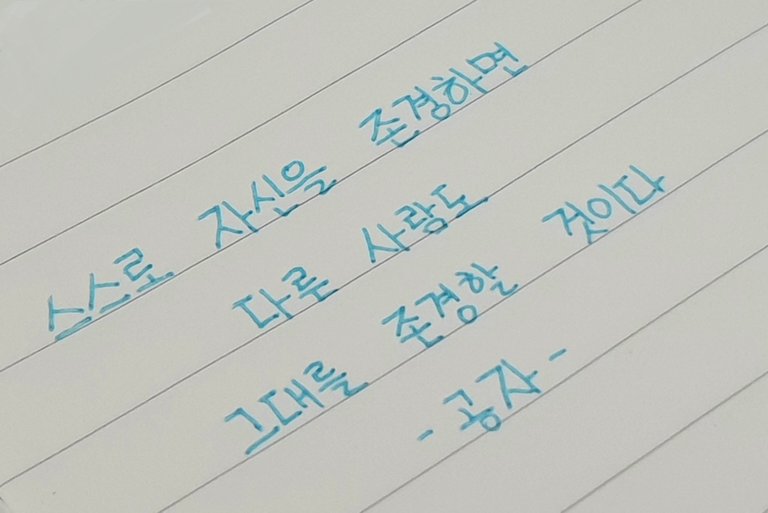 스스로 자신을 존경하면
다른 사람도
그대를 존경할 것이다
- 공자 -